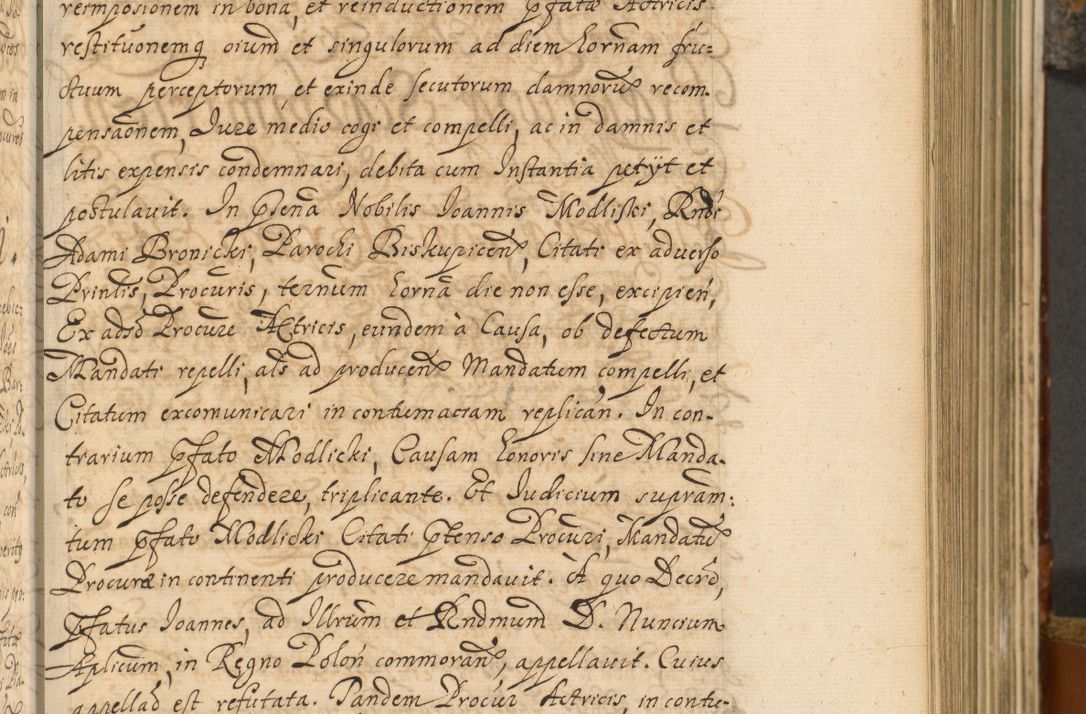 remposionem in bona, et reinductionem pfatae Actricis
restituonemq oium et singulorum ad diem hornam fru:
ctuum perceptorum, et exinde secutorum damnorum recom-
pensaonem, Jure medio cogi et compelli, ac in damnis et
litis expensis condemnari, debita cum Instantia petijt et
postulavit. In psena Nobilis Joannis Modliski, Rndi
Adami Bronicki, Parochi Biskupicen, Citati ex adverso
Prinlis, Procuris, ternum hornam die non esse, excipien,
Ex adso Procure Actricis, eundem à Causa, ob defectum
Mandati repelli, als ad producen Mandatum compelli, et
Citatum excomunicari in contumaciam replican. In con-
trarium pfato Modlicki, Causam honoris sine Manda-
to se posse defendere, triplicante. Et Judicium supram:
tum pfato Modlicki Citati ptenso Procuri, Mandatum
Procurae in continenti producere mandavit. A quo Decro,
Pfatus Joannes, ad Illrum et Rndmum D. Nuncium
Aplicum, in Regno Polon commoran, appellavit. Cuius
appellao est refutata. Tandem Procur Actricis, in contu-